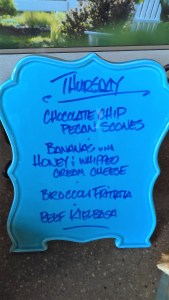 THURSDAY
CHOCOLATE CHIP
PECAN SCONES
BANANAS WITH
HONEY & WHIPPED
CREAM CHEESE
BROCCOLI FRITATA
BEEF KIELBASA